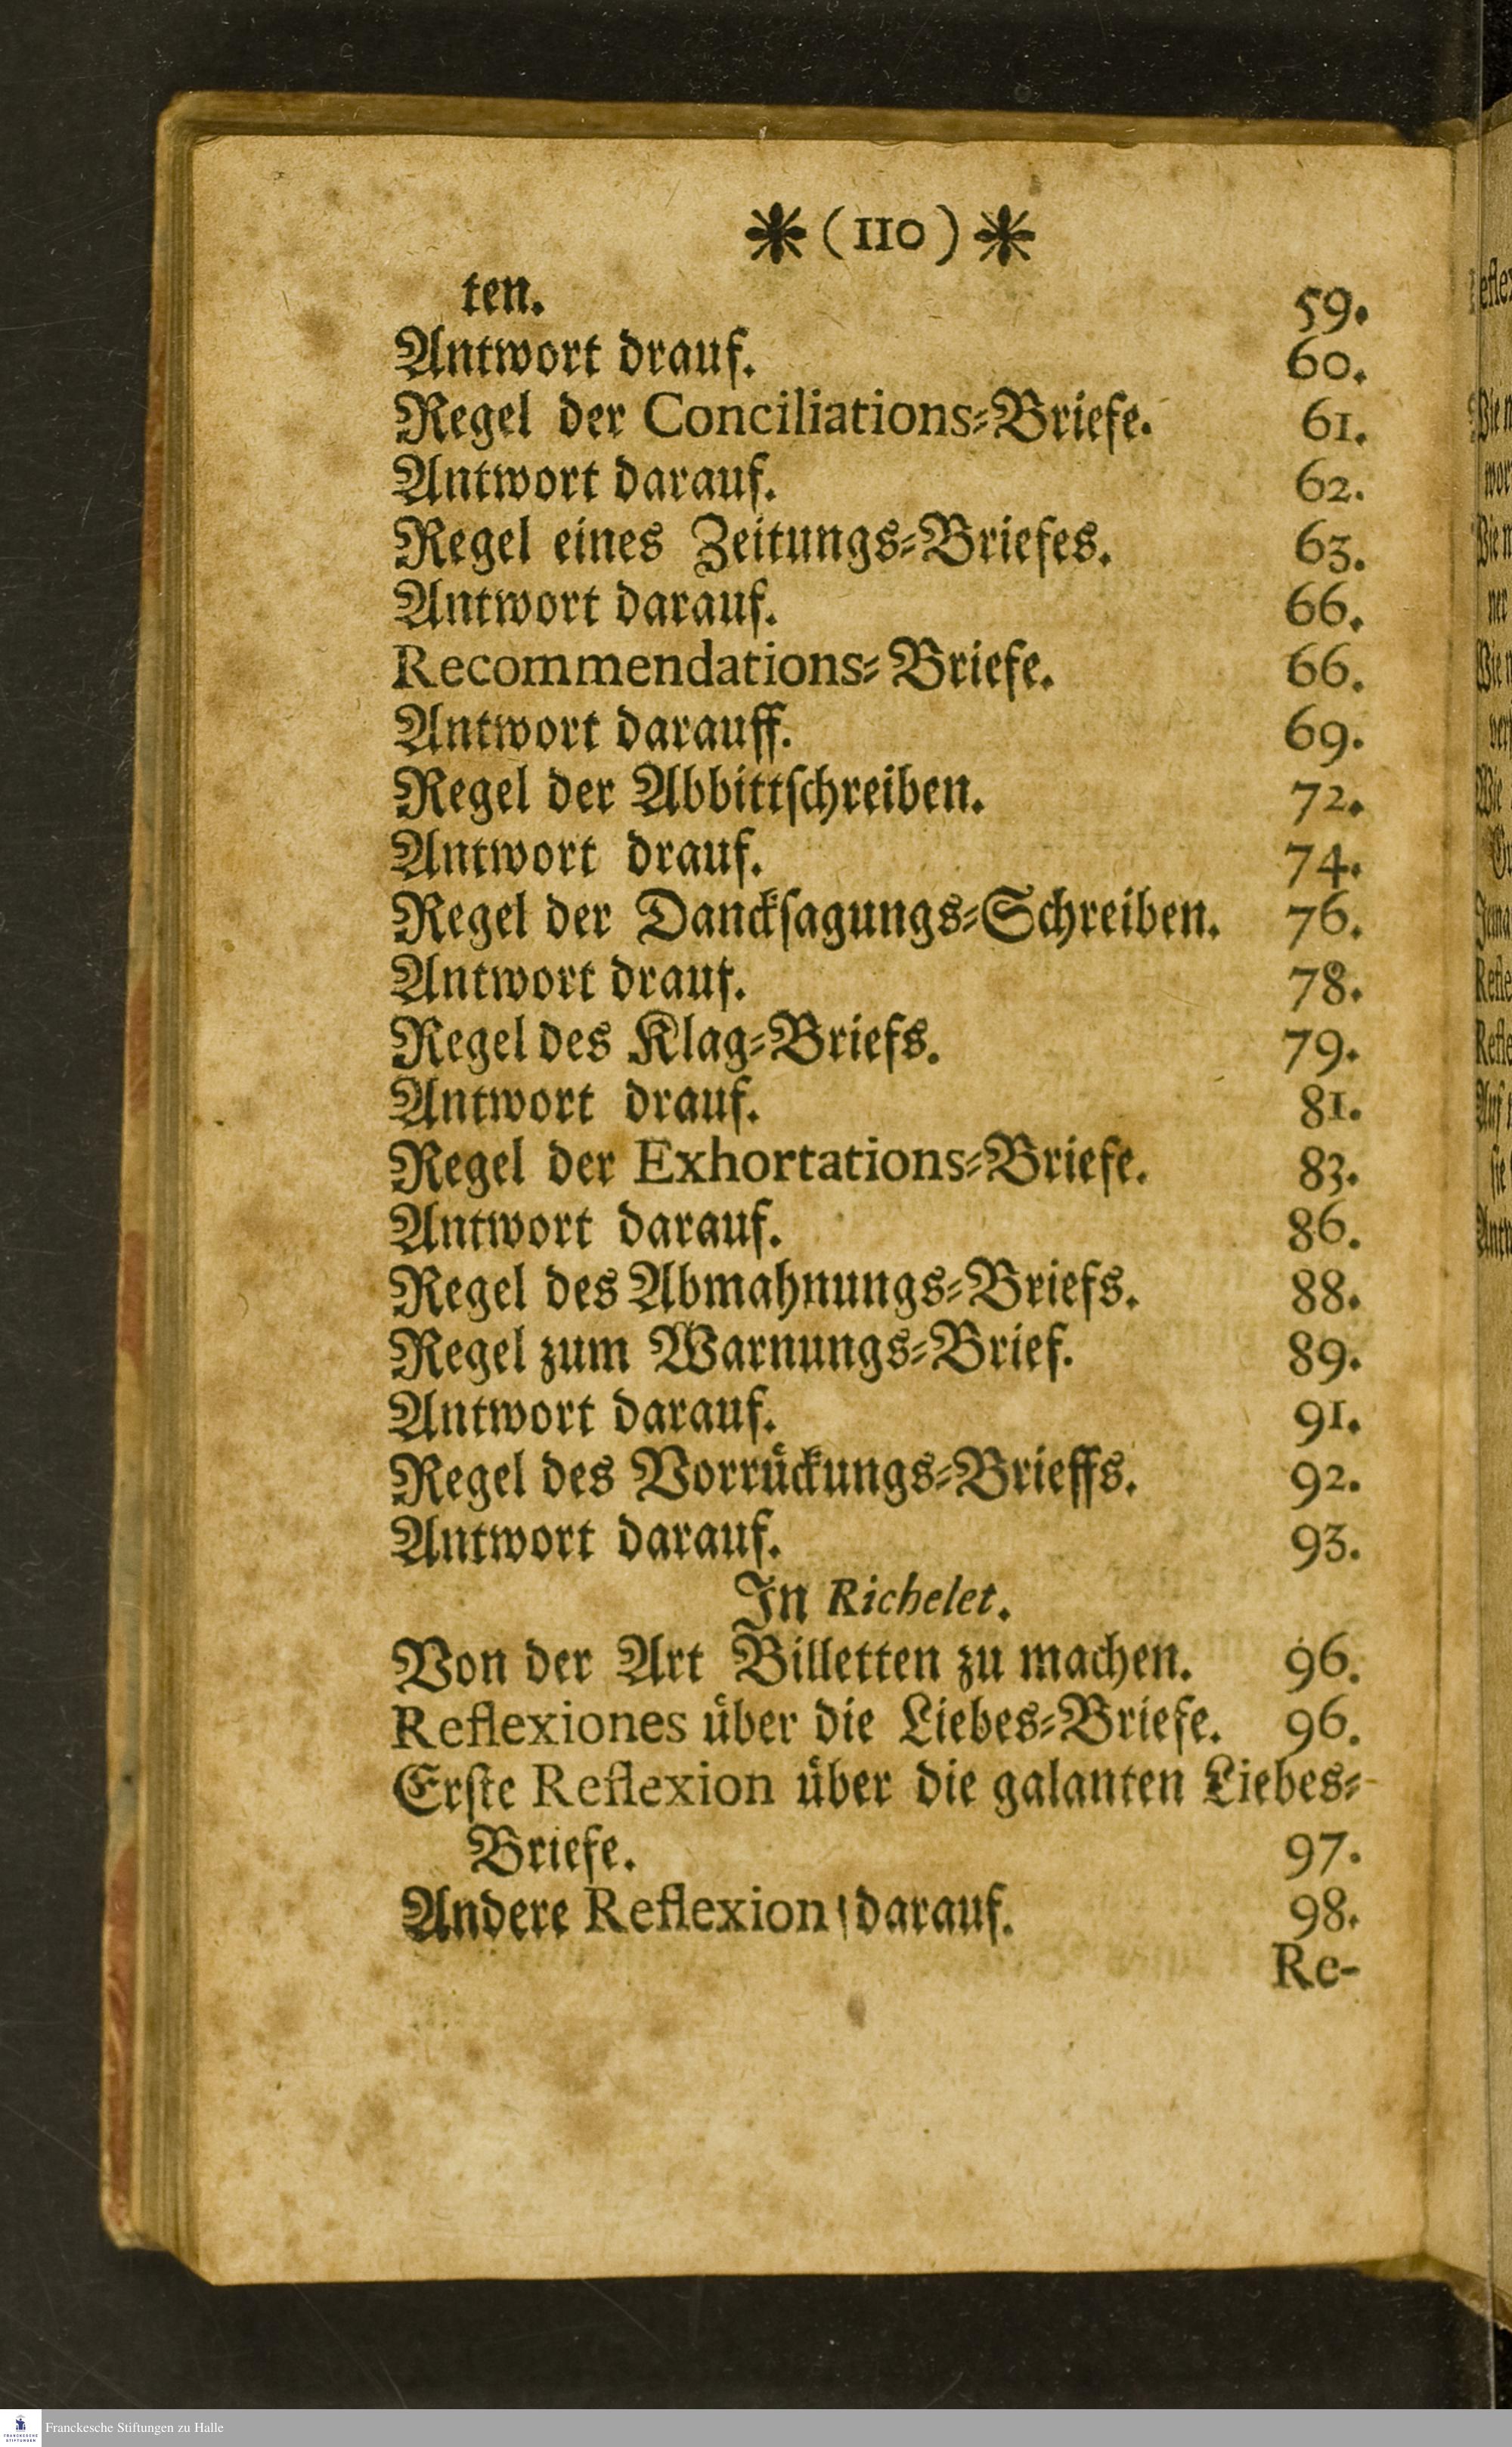 ❋(110)❋
ten. 59.
Antwort drauf. 60.
Regel der Conciliations⸗Briefe. 61.
Antwort darauf. 62.
Regel eines Zeitungs⸗Briefes. 63.
Antwort darauf. 66.
Recommendations⸗Briefe. 66.
Antwort darauff. 69.
Regel der Abbittſchreiben. 72.
Antwort drauf. 74.
Regel der Danckſagungs⸗Schreiben. 76.
Antwort drauf. 78.
Regel des Klag⸗Briefs. 79.
Antwort drauf. 81.
Regel der Exhortations⸗Briefe. 83.
Antwort darauf. 86.
Regel des Abmahnungs⸗Briefs. 88.
Regel zum Warnungs⸗Brief. 89.
Antwort darauf. 91.
Regel des Vorruͤckungs⸗Brieffs. 92.
Antwort darauf. 93.
In Richelet.
Von der Art Billetten zu machen. 96.
Reflexiones uͤber die Liebes⸗Briefe. 96.
Erſte Reflexion uͤber die galanten Liebes⸗
Briefe. 97.
Andere Reflexion darauf. 98.
Re-
Franckesche Stiftungen zu Halle